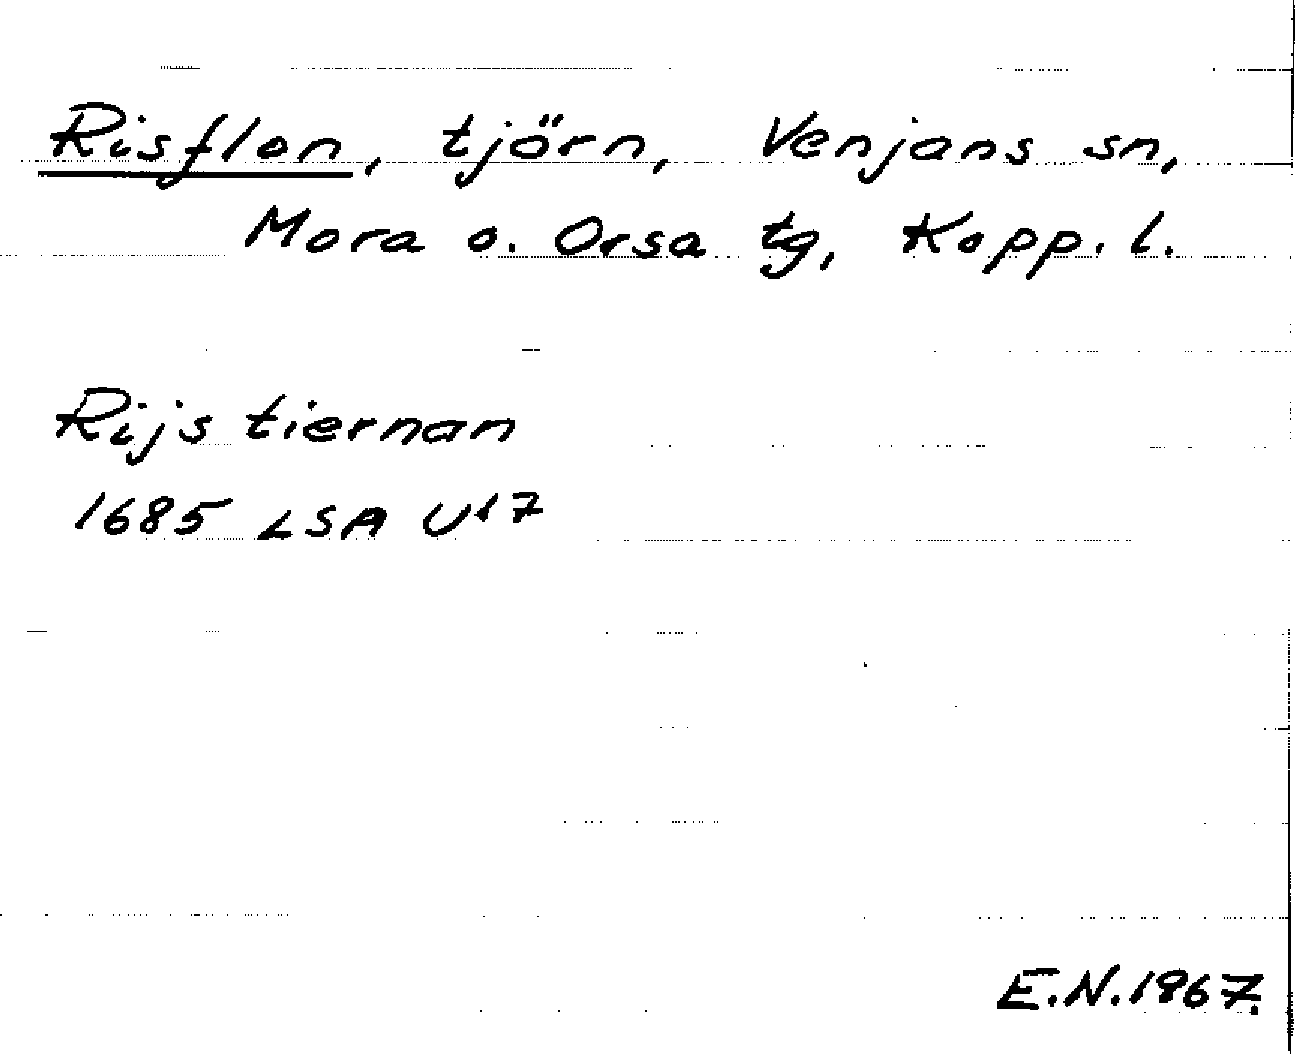 Risflon, tjörn, Venjans sn,
Mora o. Orsa tg, Kopp. l.
Rijs tiernan
1685 LSA U17
E.N.1967.